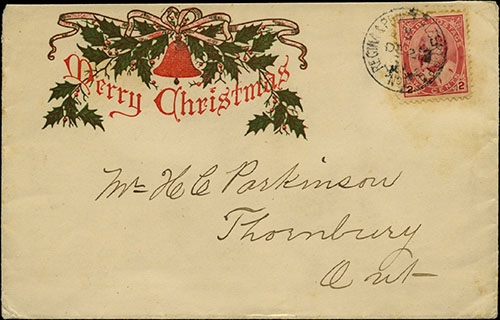 Merry Christmas
POSTAGE
REGINA & P
2 2
Mr H C Parkinson
Thornbury
Ont